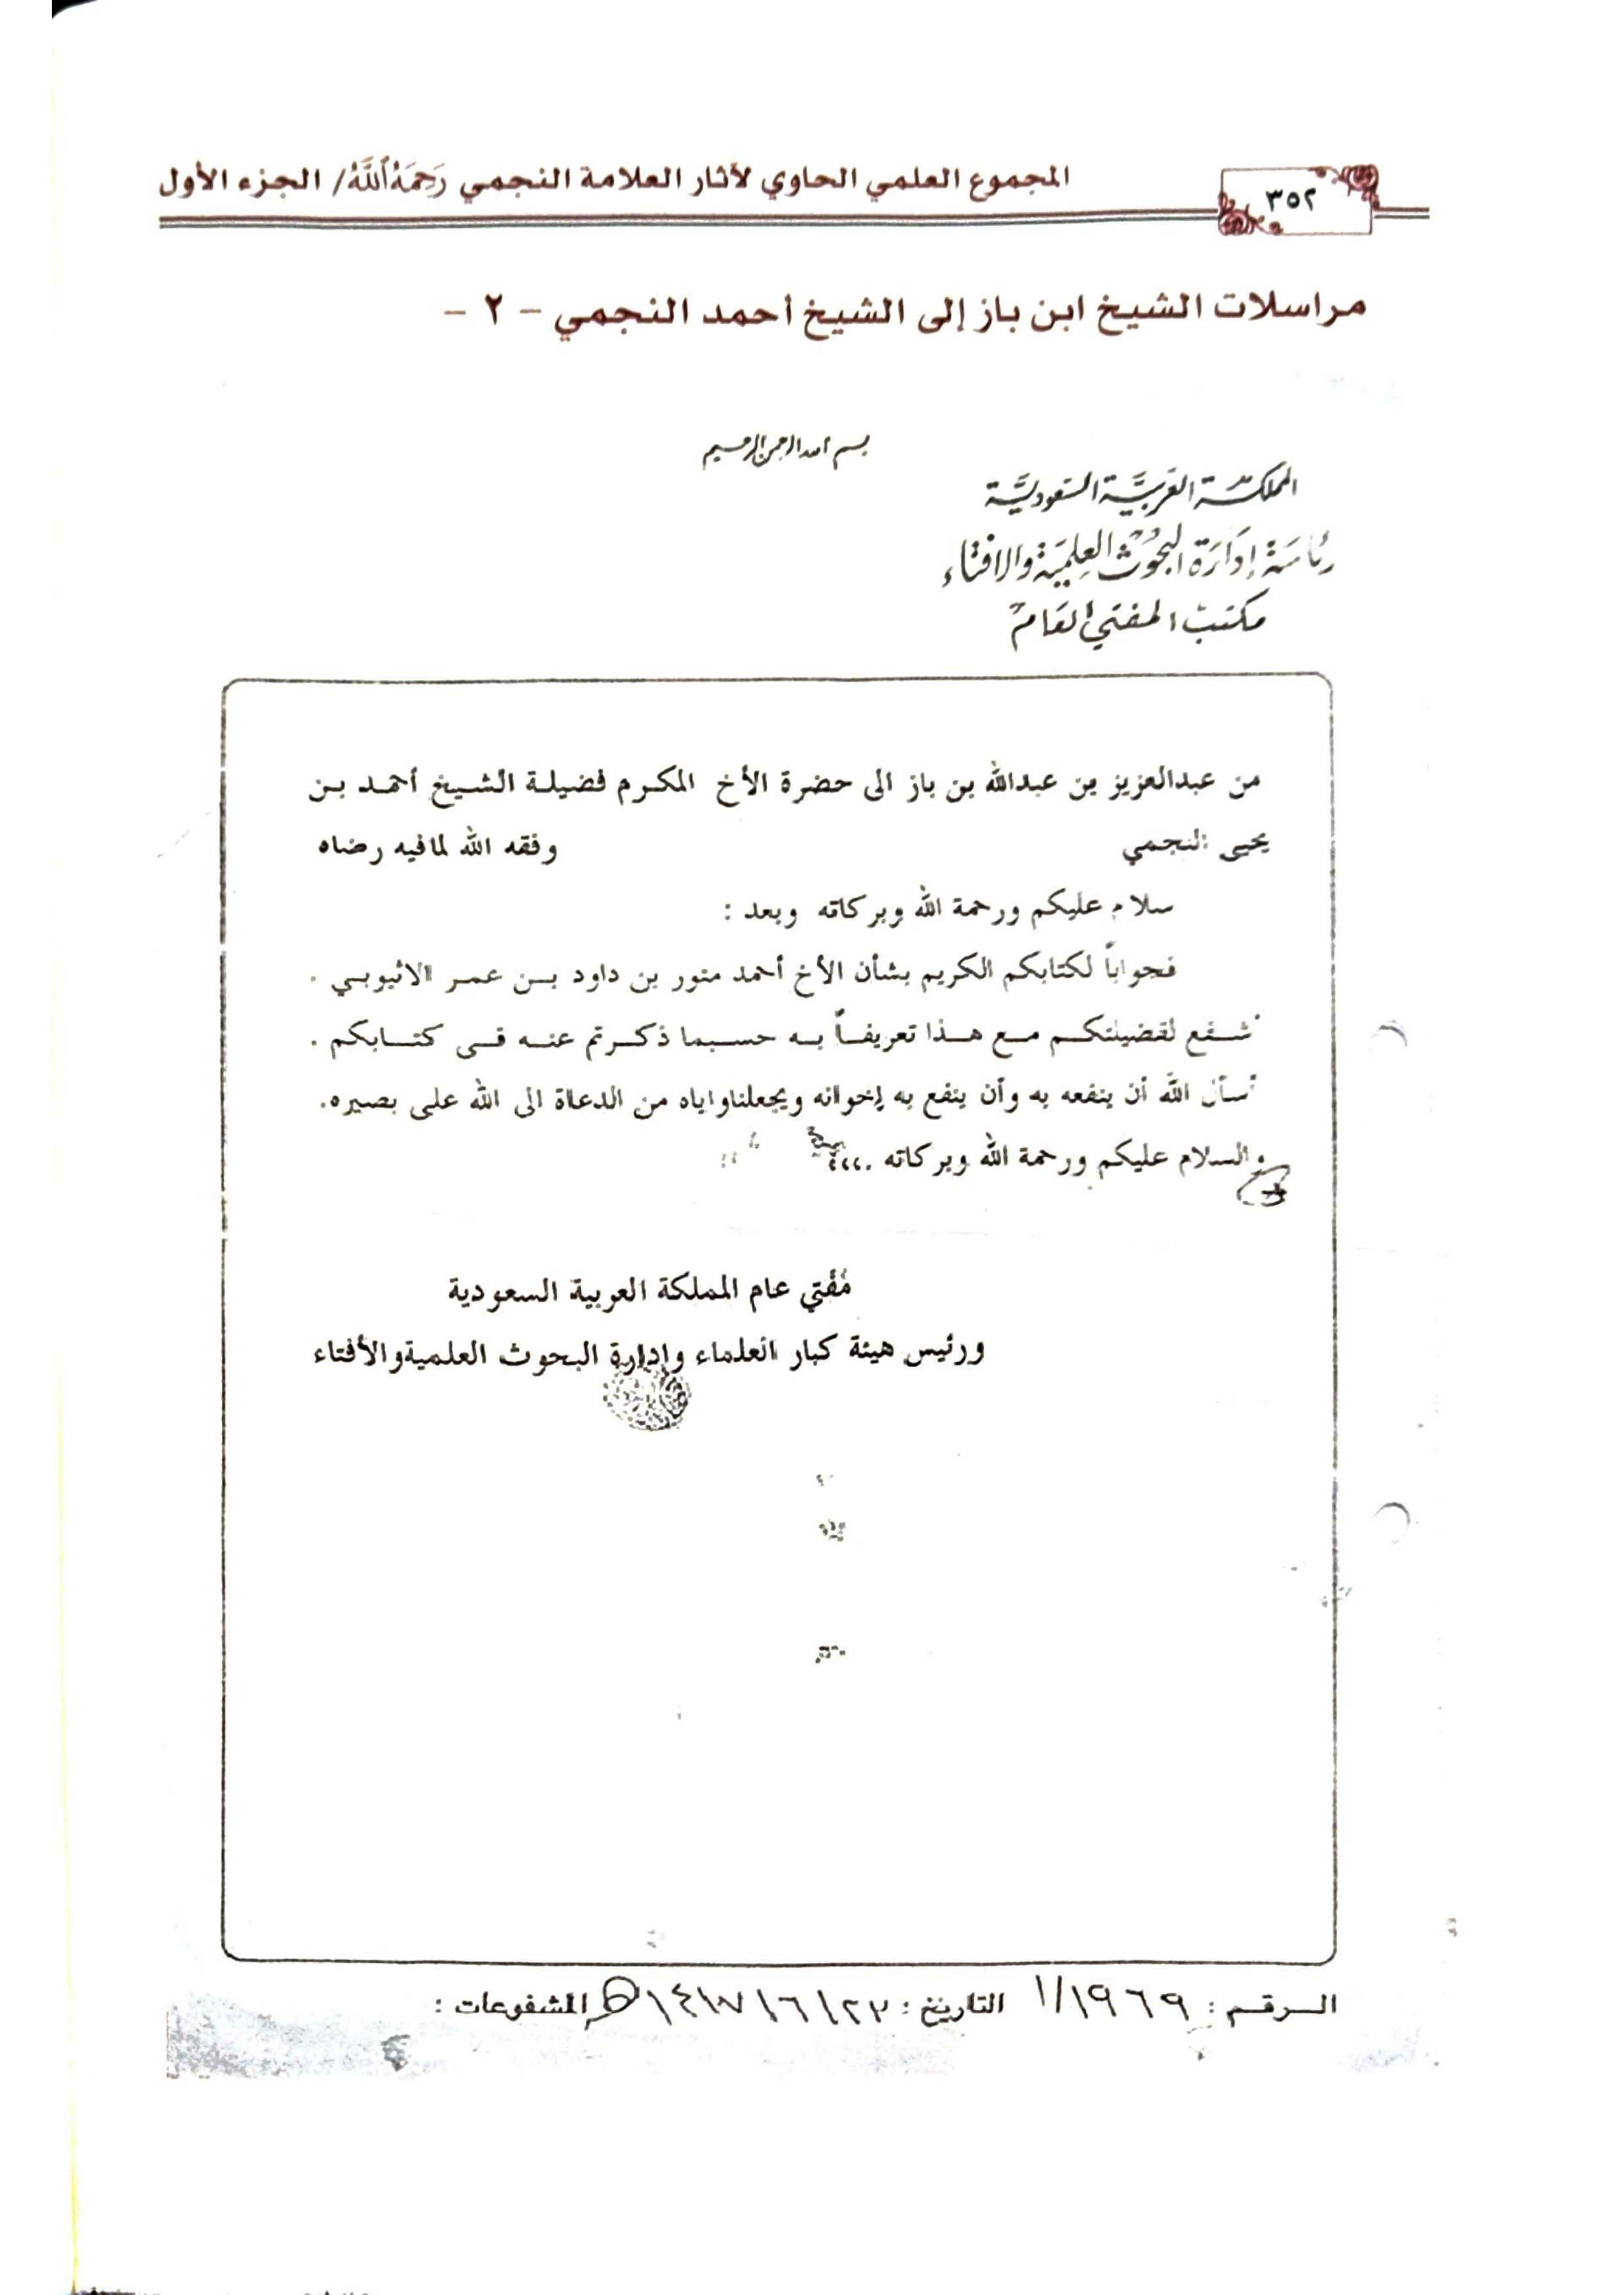 ٣٥٢
المجموع العلمي الحاوي لآثار العلامة النجمي رَحِمَهُ ٱللَّهُ / الجزء الأول
مراسلات الشيخ ابن باز إلى الشيخ أحمد النجمي - ٢ -
بسم الله الرحمن الرحيم
المملكة العربية السعودية
رئاسة إدارة البحوث العلمية والافتاء
مكتب المفتي العام
من عبدالعزيز بن عبدالله بن باز الى حضرة الأخ المكرم فضيلة الشيخ أحمد بن
يحيى النجمي وفقه الله لمافيه رضاه
سلام عليكم ورحمة الله وبركاته وبعد :
فجواباً لكتابكم الكريم بشأن الأخ أحمد منور بن داود بن عمر الاثيوبي .
نشفع لفضيلتكم مع هذا تعريفاً به حسبما ذكرتم عنه في كتابكم .
نسأل الله أن ينفعه به وأن ينفع به إخوانه ويجعلناواياه من الدعاة الى الله على بصيره.
والسلام عليكم ورحمة الله وبركاته .،،،
مُفتي عام المملكة العربية السعودية
ورئيس هيئة كبار العلماء وإدارة البحوث العلميةوالأفتاء
الرقم : ١/١٩٦٩ التاريخ : ٢٣/٦/١٤١٧هـ المشفوعات :